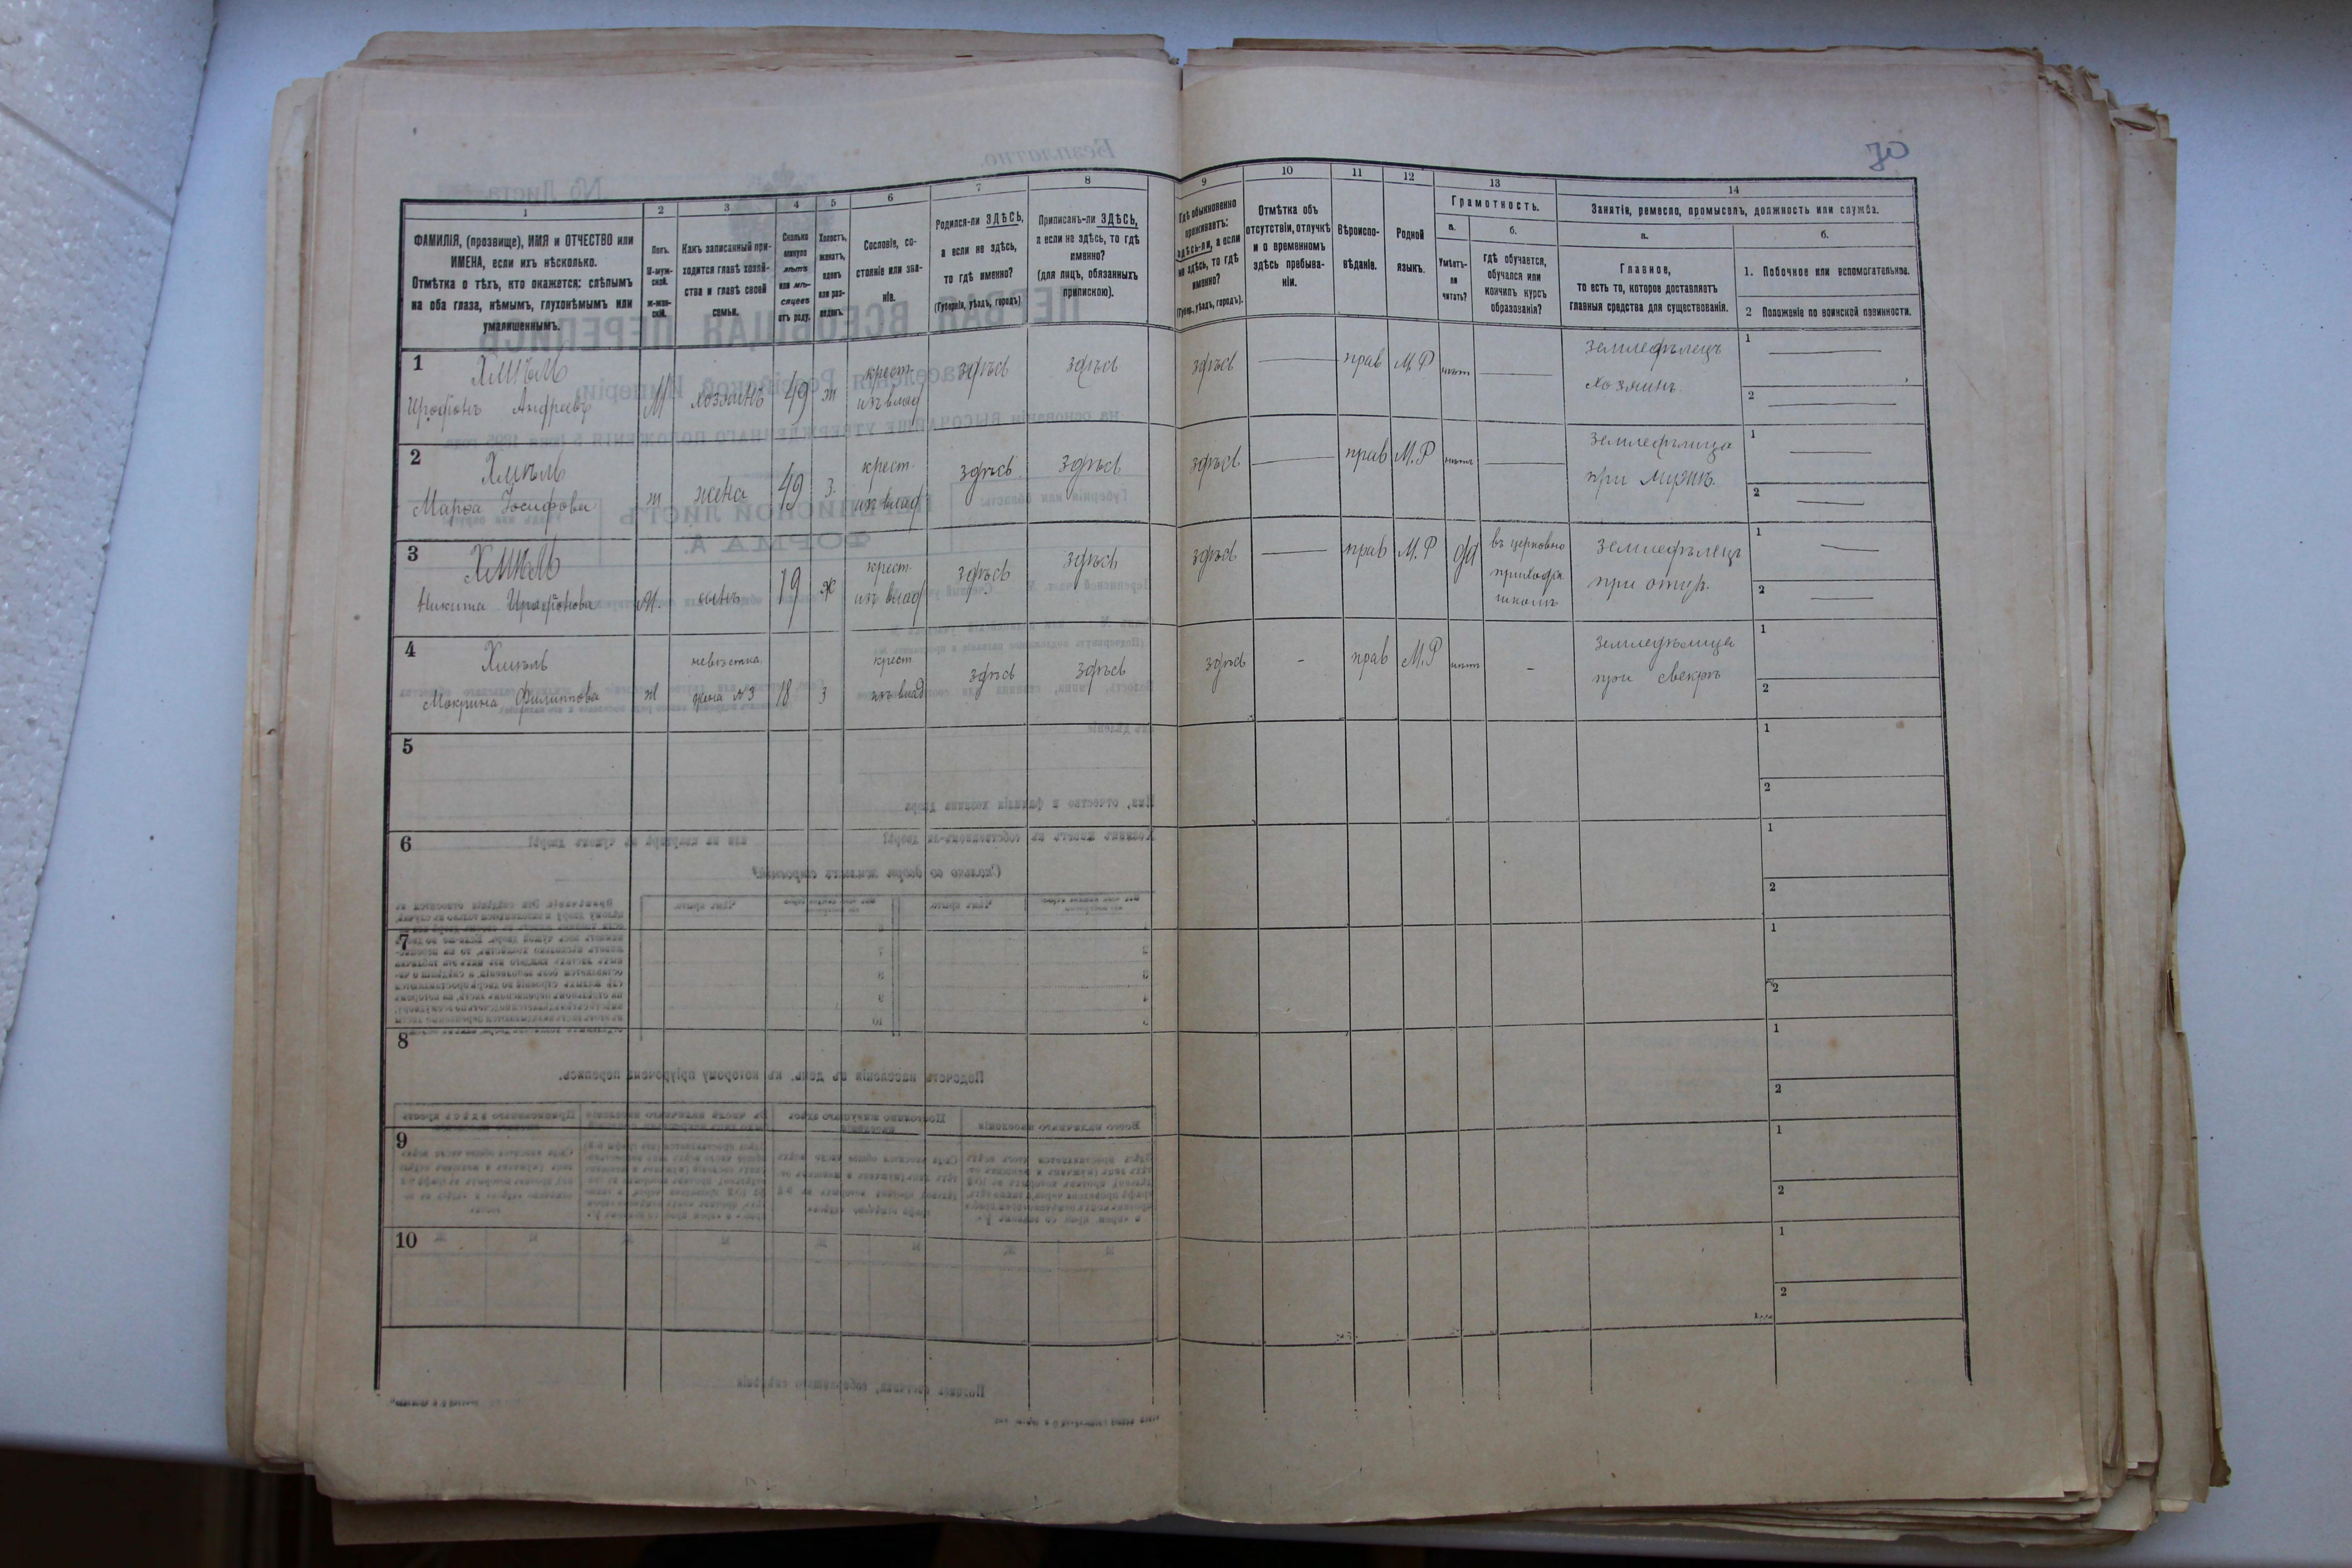 70
1
2
3
4
5
6
7
8
9
10
11
12
13
14
ФАМИЛІЯ, (прозвище), ИМЯ и ОТЧЕСТВО или
ИМЕНА, если ихъ нѣсколько.
Отмѣтка о тѣхъ, кто окажется: слѣпымъ
на оба глаза, нѣмымъ, глухонѣмымъ или
умалишеннымъ.
Полъ.
М-муж-
ской.
ж-жен-
скій.
Какъ записанный при-
ходится главѣ хозяй-
ства и главѣ своей
семьи.
Сколько
минуло
лѣтъ
или мѣ-
сяцевъ
отъ роду.
Холостъ,
женатъ,
вдовъ
или раз-
веденъ.
Сословіе, со-
стояніе или зва-
ніе.
Родился-ли ЗДѢСЬ,
а если не здѣсь,
то гдѣ именно?
(Губернія, уѣздъ, городъ)
Приписанъ-ли ЗДѢСЬ,
а если не здѣсь, то гдѣ
именно?
(для лицъ, обязанныхъ
припискою).
Гдѣ обыкновенно
проживаетъ:
здѣсь-ли, а если
не здѣсь, то гдѣ
именно?
(Губер., уѣздъ, городъ).
Отмѣтка объ
отсутствіи, отлучкѣ
и о временномъ
здѣсь пребыва-
ніи.
Вѣроиспо-
вѣданіе.
Родной
языкъ.
Грамотность.
а.
Умѣетъ-
ли
читать?
б.
гдѣ обучается,
обучался или
кончилъ курсъ
образованія?
Занятіе, ремесло, промыселъ, должность или служба.
а.
Главное,
то есть то, которое доставляетъ
главныя средства для существованія.
б.
1. Побочное или вспомогательное.
2 Положеніе по воинской повинности.
1
Хмѣль
Иродіонъ Андреевъ
М
хозяинъ
49
ж
крест.
изъ влад
здѣсь
здѣсь
здѣсь
прав
М.Р
нѣтъ
земледѣлецъ
хозяинъ.
1
2
2
Хмѣль
Марфа Іосифова
ж
жена
49
з.
крест.
изъ влад
здѣсь
здѣсь
здѣсь
прав
М.Р
нѣтъ
земледѣлица
при мужѣ.
1
2
3
Хмѣль
Никита Иродіонова
М.
сынъ
19
ж
крест.
изъ влад
здѣсь
здѣсь
здѣсь
прав
М.Р
да
въ церковно
приходск.
школѣ
земледѣлецъ
при отцѣ.
1
2
4
Хмѣль
Мокрина Филиппова
ж
невѣстка.
жена №3
18
з
крест
изъ влад
здѣсь
здѣсь
здѣсь
-
прав
М.Р
нѣтъ
-
земледѣлица
при свекрѣ
1
2
5
1
2
6
1
2
7
1
2
8
1
2
9
1
2
10
1
2